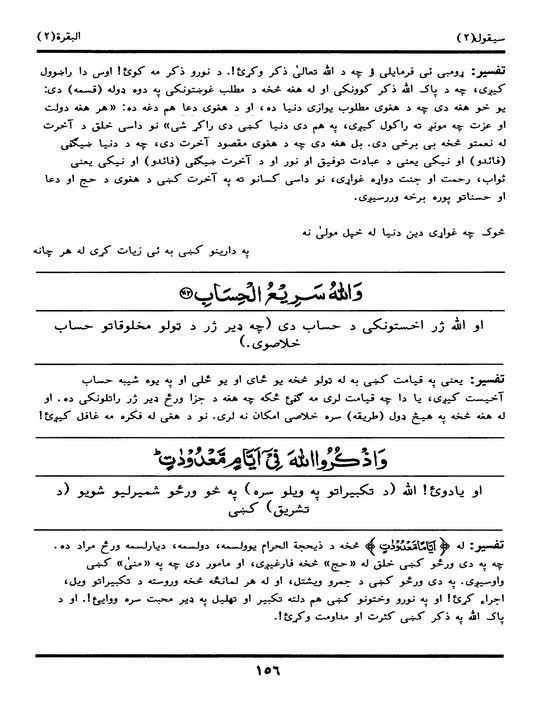 سيقول(٢) البقرة(٢)
تفسير: ړومبی ئی فرمایلی ؤ چه د الله تعالیٰ ذکر وکړئ!. د نورو ذکر مه کوئ! اوس دا راښوول
کیږی، چه د پاک الله ذکر کوونکی او له هغه څخه د مطلب غوښتونکی په دوه ډوله (قسمه) دی:
یو خو هغه دی چه د هغوی مطلوب یوازی دنیا ده، او د هغوی دعا هم دغه ده: «هر هغه دولت
او عزت چه مونږ ته راکول کیږی، په هم دی دنیا کښی دی راکړ شی» نو داسی خلق د آخرت
له نعمتو څخه بی برخی دی. بل هغه دی چه د هغوی مقصود آخرت دی، چه د دنیا ښیګڼی
(فائدو) او نیکی یعنی د عبادت توفیق او نور او د آخرت ښیګڼی (فائدو) او نیکی یعنی
ثواب، رحمت او جنت دواړه غواړی، نو داسی کسانو ته په آخرت کښی د هغوی د حج او دعا
او حسناتو پوره برخه وررسیږی.
څوک چه غواړی دین دنیا له خپل مولیٰ نه
په دارینو کښی به ئی زیات کړی له هر چانه
وَاللهُ سَرِيْعُ الْحِسَابِ ﴿٢٠٢﴾
او الله ژر اخستونکی د حساب دی (چه ډیر ژر د ټولو مخلوقاتو حساب
خلاصوی.)
تفسیر: یعنی په قیامت کښی به له ټولو څخه یو ځای او یو ځلی او په یوه شیبه حساب
آخیست کیږی، یا دا چه قیامت لری مه ګڼئ ځکه چه هغه د جزا ورځ ډیر ژر راتلونکی ده. او
له هغه څخه په هیڅ ډول (طریقه) سره خلاصی امکان نه لری. نو د هغی له فکره مه غافل کیږئ!
وَاذْكُرُوا اللهَ فِيْٓ اَيَّامٍ مَّعْدُوْدٰتٍ ؕ
او یادوئ! الله (د تکبیراتو په ویلو سره) په څو ورځو شمیرلیو شویو (د
تشریق) کښی
تفسیر: له ﴿ اَيَّامًا مَّعْدُوْدٰتٍ ﴾ څخه د ذیحجة الحرام یوولسمه، دولسمه، دیارلسمه ورځ مراد ده.
چه په دی ورځو کښی خلق له «حج» څخه فارغیږی، او مامور دی چه په «منیٰ» کښی
واوسیږی. په دی ورځو کښی د جمرو ویشتل، او له هر لمانځه څخه وروسته د تکبیراتو ویل،
اجراء کړئ! او په نورو وختونو کښی هم دلته تکبیر او تهلیل په ډیر محبت سره ووایئ!. او د
پاک الله په ذکر کښی کثرت او مداومت وکړئ!.
١٥٦